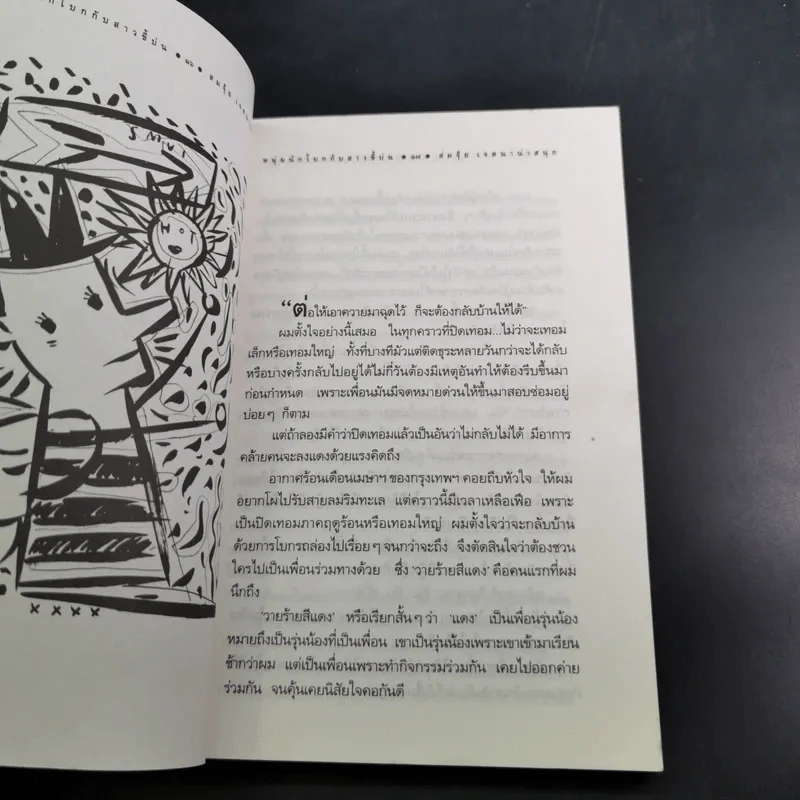 กโบกกับสาวขี้บ่น ● ๑๖ ● สมจุ้ย เจต
SMUI
หนุ่มนักโบกกับสาวขี้บ่น ● ๑๗ ● สมจุ้ย เจตนาน่าสนุก
“ต่อให้เอาควายมาฉุดไว้ ก็จะต้องกลับบ้านให้ได้”
ผมตั้งใจอย่างนี้เสมอ ในทุกคราวที่ปิดเทอม...ไม่ว่าจะเทอม
เล็กหรือเทอมใหญ่ ทั้งที่บางทีมัวแต่ติดธุระหลายวันกว่าจะได้กลับ
หรือบางครั้งกลับไปอยู่ได้ไม่กี่วันต้องมีเหตุอันทำให้ต้องรีบขึ้นมา
ก่อนกำหนด เพราะเพื่อนมันมีจดหมายด่วนให้ขึ้นมาสอบซ่อมอยู่
บ่อยๆ ก็ตาม
แต่ถ้าลองมีคำว่าปิดเทอมแล้วเป็นอันว่าไม่กลับไม่ได้ มีอาการ
คล้ายคนจะลงแดงด้วยแรงคิดถึง
อากาศร้อนเดือนเมษาฯ ของกรุงเทพฯ คอยถีบหัวใจ ให้ผม
อยากโผไปรับสายลมริมทะเล แต่คราวนี้มีเวลาเหลือเฟือ เพราะ
เป็นปิดเทอมภาคฤดูร้อนหรือเทอมใหญ่ ผมตั้งใจว่าจะกลับบ้าน
ด้วยการโบกรถล่องไปเรื่อยๆ จนกว่าจะถึง จึงตัดสินใจว่าต้องชวน
ใครไปเป็นเพื่อนร่วมทางด้วย ซึ่ง ‘วายร้ายสีแดง’ คือคนแรกที่ผม
นึกถึง
‘วายร้ายสีแดง’ หรือเรียกสั้นๆ ว่า ‘แดง’ เป็นเพื่อนรุ่นน้อง
หมายถึงเป็นรุ่นน้องที่เป็นเพื่อน เขาเป็นรุ่นน้องเพราะเขาเข้ามาเรียน
ช้ากว่าผม แต่เป็นเพื่อนเพราะทำกิจกรรมร่วมกัน เคยไปออกค่าย
ร่วมกัน จนคุ้นเคยนิสัยใจคอกันดี